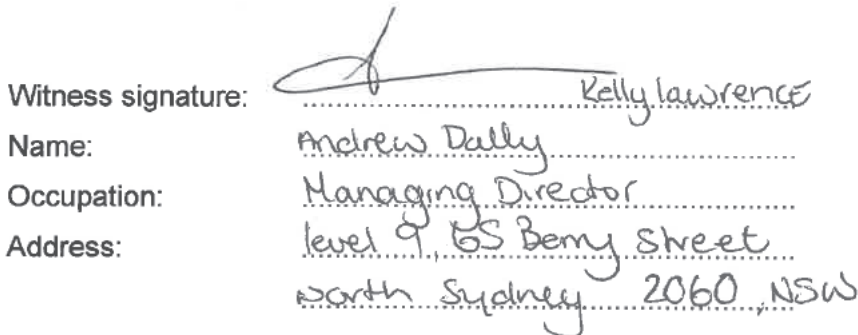 Witness signature: Kelly lawrence
Name: Andrew Dally
Occupation: Managing Director
Address: level 9, 65 Berry Street
North Sydney 2060, NSW